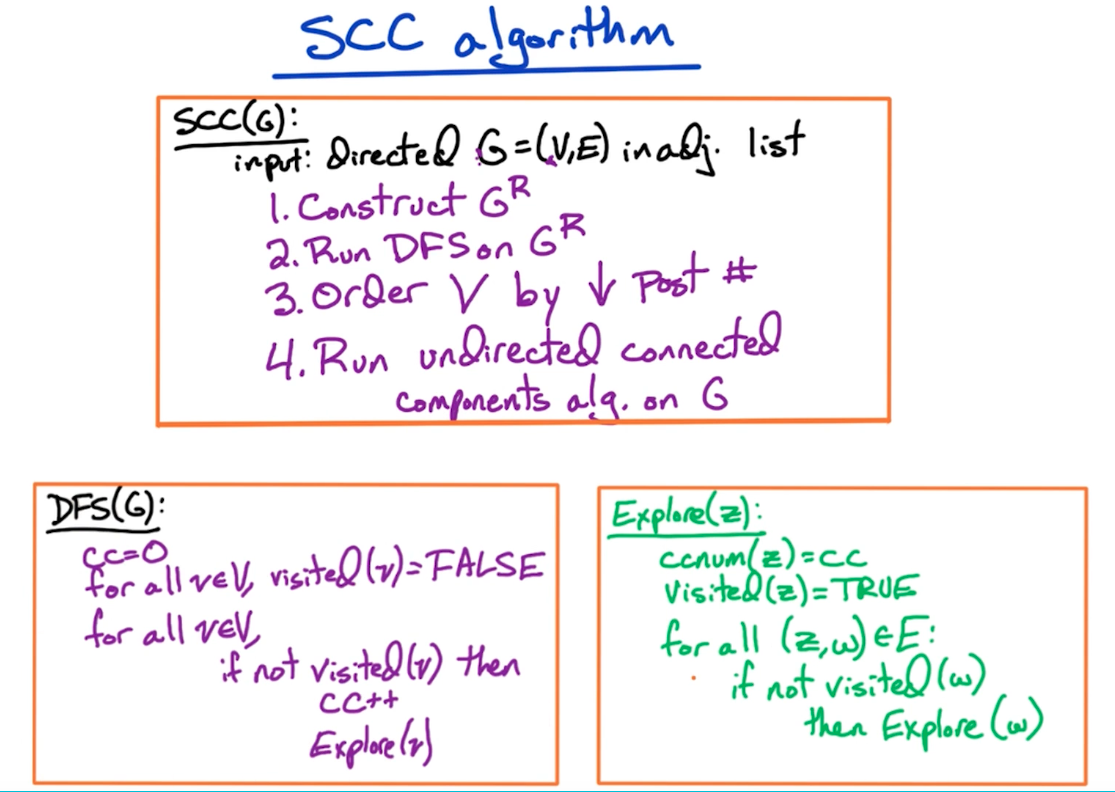 SCC algorithm
SCC(G):
input: directed G=(V,E) in adj. list
1. Construct Gᴿ
2. Run DFS on Gᴿ
3. Order V by ↓ post #
4. Run undirected connected
components alg. on G
DFS(G):
cc=0
for all v∈V, visited(v)=FALSE
for all v∈V,
if not visited(v) then
cc++
Explore(v)
Explore(z):
ccnum(z)=cc
visited(z)=TRUE
for all (z,w)∈E:
if not visited(w)
then Explore(w)